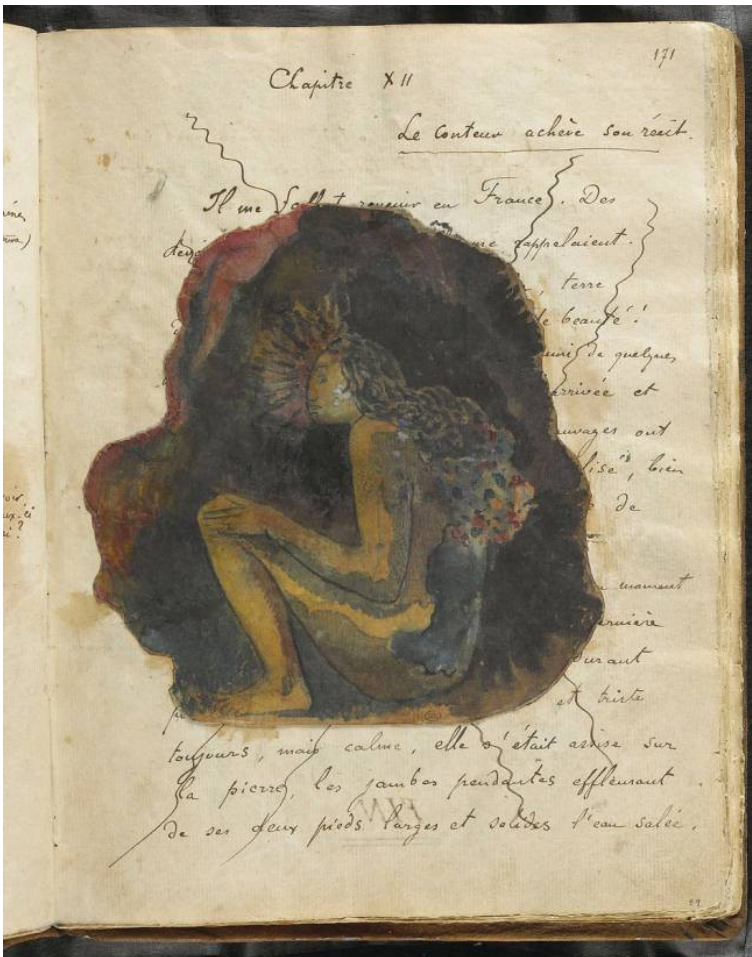 171
Chapitre XII
Le conteur achève son récit.
Il me fallut revenir en France. Des
me rappelaient.
terre
de beauté!
muni de quelques
arrivée et
sauvages ont
lisé, bien
de
moment
dernière
durant
et triste
toujours, mais calme, elle s'était assise sur
la pierre, les jambes pendantes effleurant
de ses deux pieds larges et solides l'eau salée.